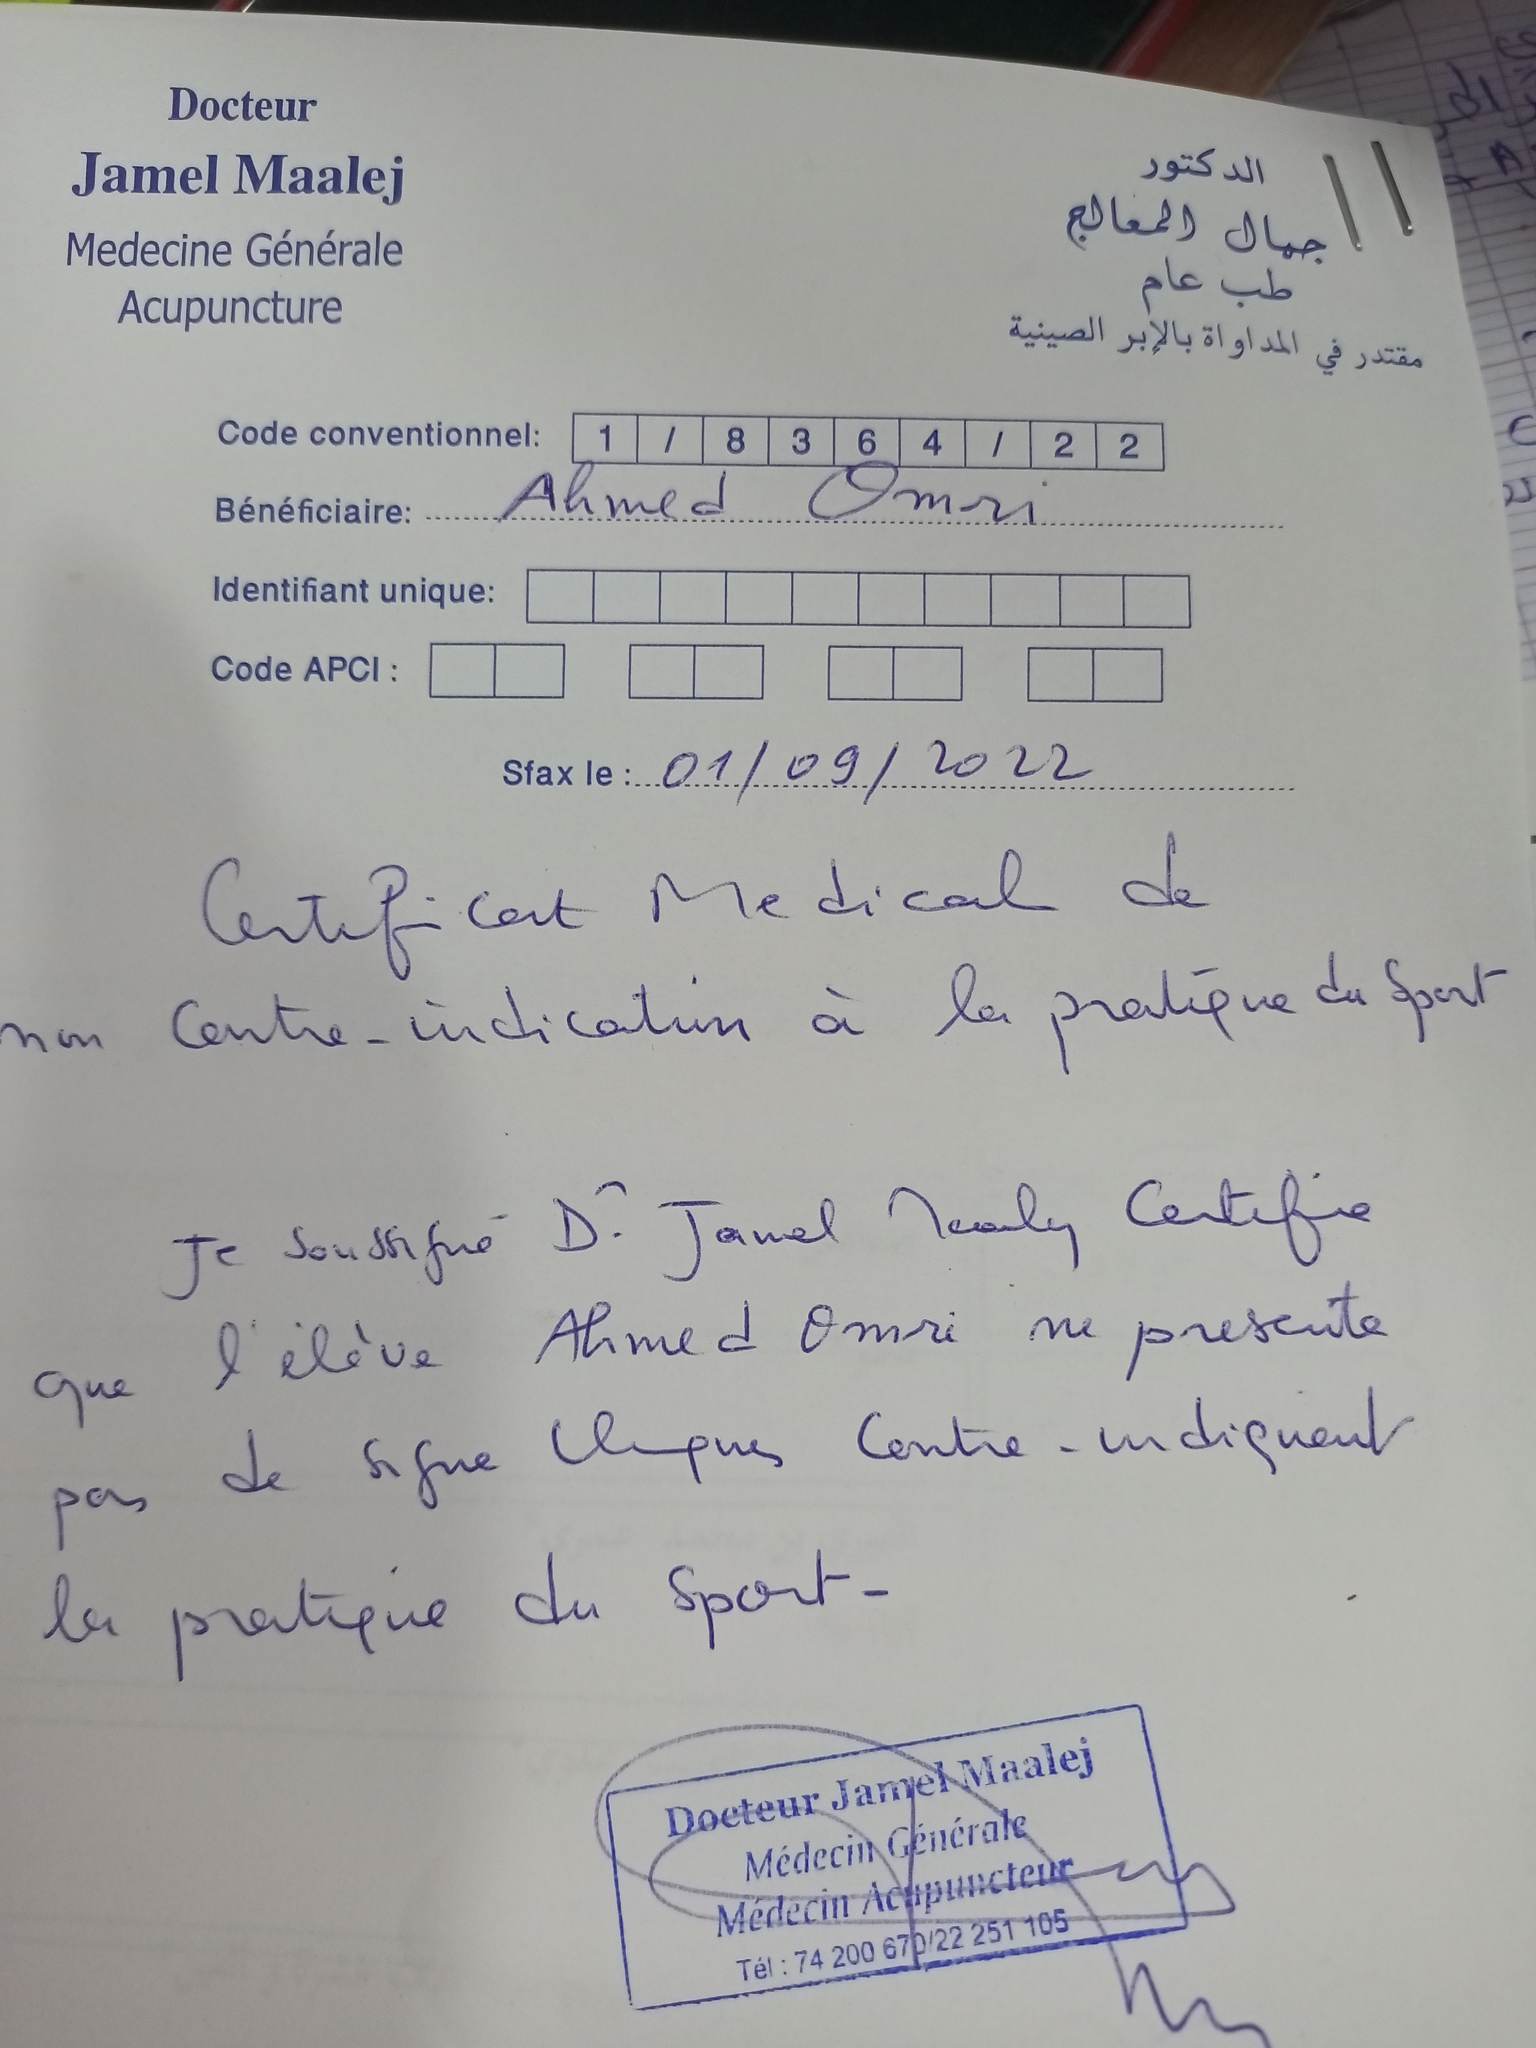 Docteur
Jamel Maalej
Medecine Générale
Acupuncture
الدكتور
جمال المعالج
طب عام
مقتدر في المداواة بالإبر الصينية
Code conventionnel: 1 / 8 3 6 4 / 2 2
Bénéficiaire: Ahmed Omri
Identifiant unique:
Code APCI :
Sfax le : 01/09/2022
Certificat Medical de
non Contre-indication à la pratique du Sport
Je soussigné Dr Jamel Maalej Certifie
que l'élève Ahmed Omri ne presente
pas de signe cliniques Contre-indiquent
la pratique du Sport-
Docteur Jamel Maalej
Médecin Générale
Médecin Acupuncteur
Tél : 74 200 670/22 251 105